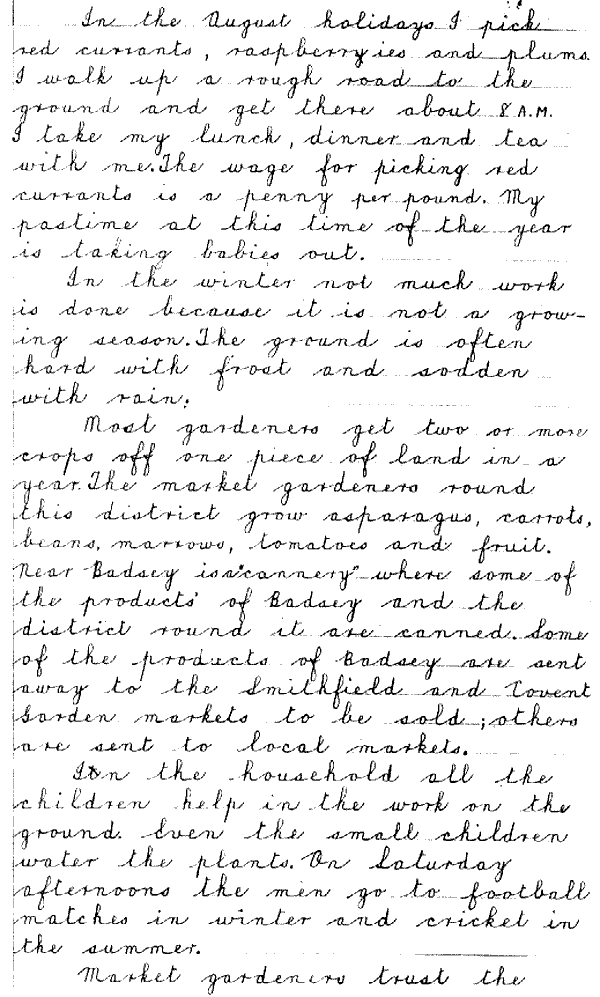 In the August holidays I pick
red currants, raspberryies and plums.
I walk up a rough road to the
ground and get there about 8 A.M.
I take my lunch, dinner and tea
with me. The wage for picking red
currants is a penny per pound. My
pastime at this time of the year
is taking babies out.
In the winter not much work
is done because it is not a grow-
ing season. The ground is often
hard with frost and sodden
with rain.
Most gardeners get two or more
crops off one piece of land in a
year. The market gardeners round
this district grow asparagus, carrots,
beans, marrows, tomatoes and fruit.
Near Badsey is a "cannery" where some of
the products of Badsey and the
district round it are canned. Some
of the products of Badsey are sent
away to the Smithfield and Covent
Garden markets to be sold; others
are sent to local markets.
In the household all the
children help in the work on the
ground. Even the small children
water the plants. On Saturday
afternoons the men go to football
matches in winter and cricket in
the summer.
Market gardeners trust the